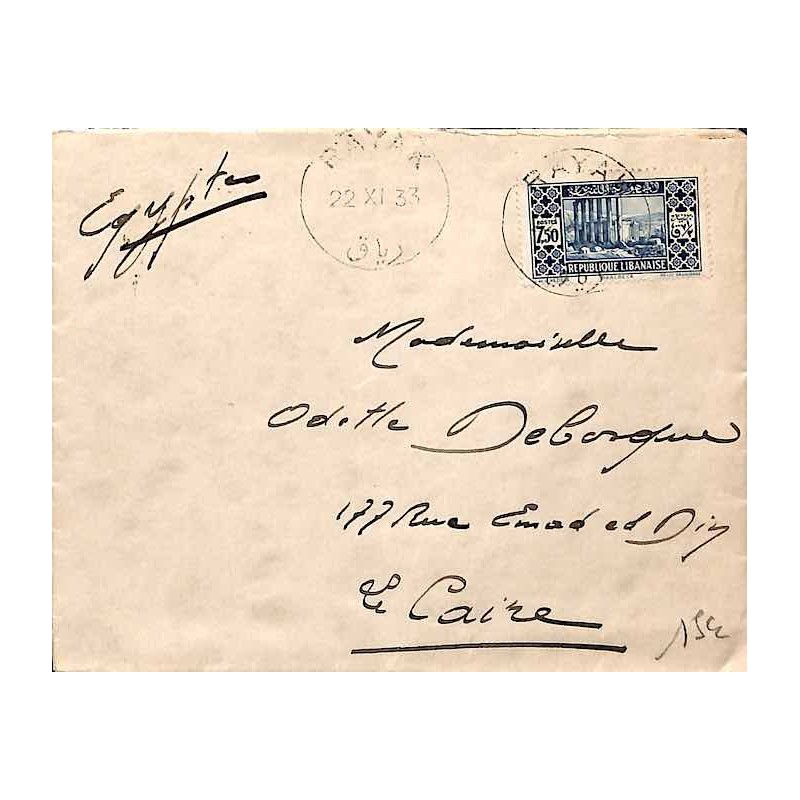 Egypte
RAYAK
22 XI 33
رياق
RAYAK
POSTES
7,50
REPUBLIQUE LIBANAISE
Mademoiselle
Odette Deborgue
177 Rue Emad ed Din
Le Caire